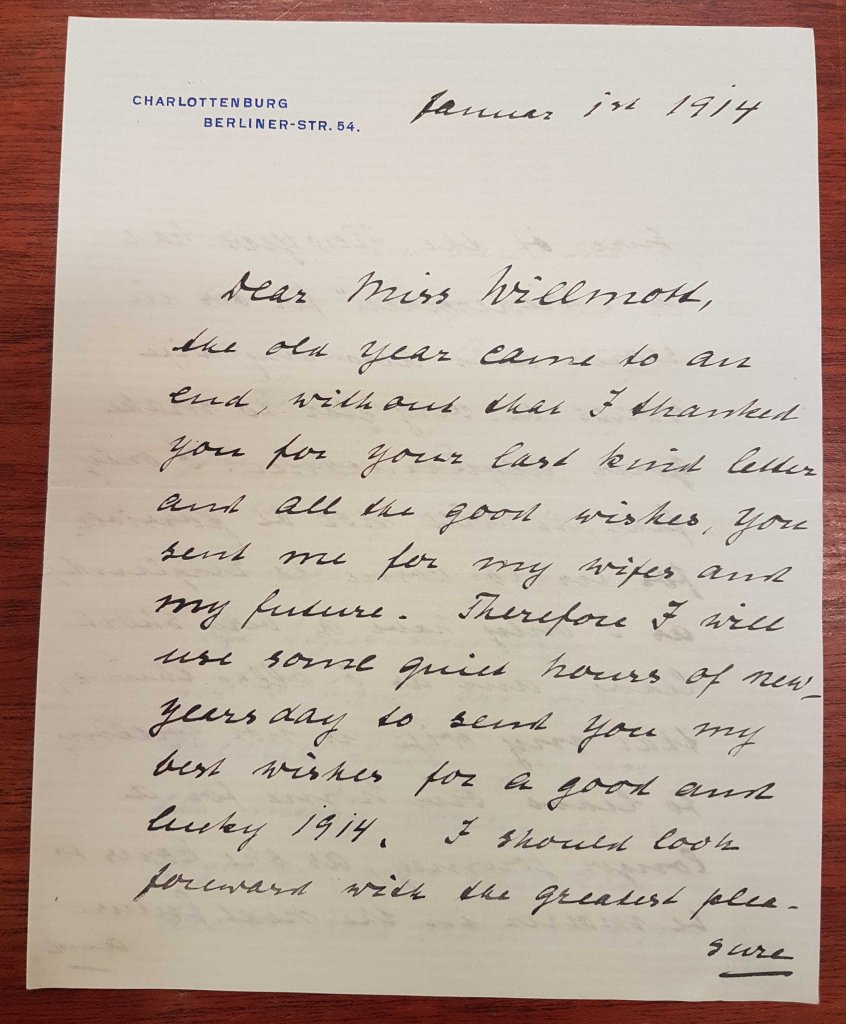 CHARLOTTENBURG
BERLINER-STR. 54.
Januar 1st 1914
Dear Miss Willmott,
the old year came to an
end, without that I thanked
you for your last kind letter
and all the good wishes, you
sent me for my wifes and
my future. Therefore I will
use some quiet hours of new-
yearsday to send you my
best wishes for a good and
lucky 1914. I should look
foreward with the greatest plea-
sure